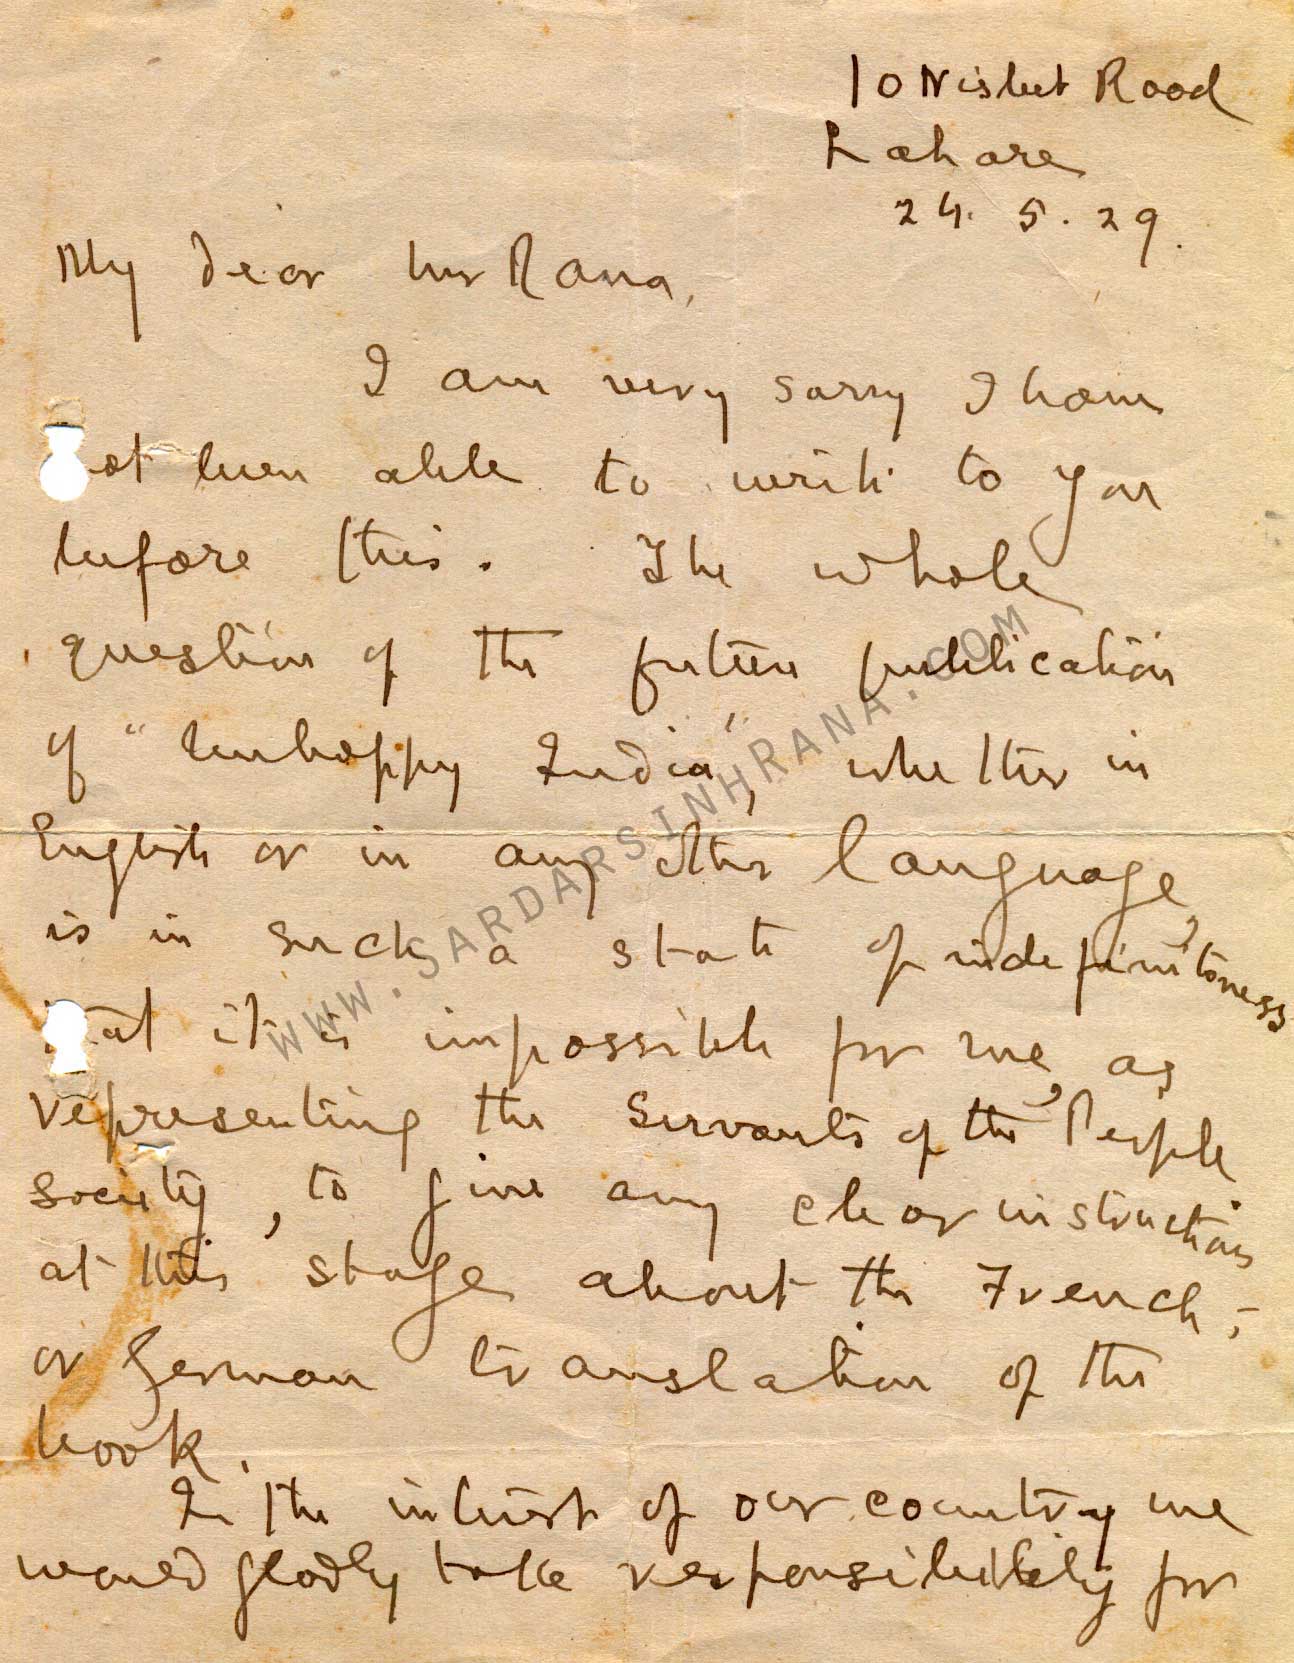 10 Nisbet Road
Lahore
24. 5. 29.
My dear Mr Rana,
I am very sorry I have
not been able to write to you
before this. The whole
question of the future publication
of "Unhappy India", whether in
English or in any other language,
is in such a state of indefinitness
that it is impossible for me, as
representing the Servants of the People
Society, to give any clear instructions
at this stage about the French,
or German translation of the
book.
In the interest of our country we
would gladly take responsibility for
WWW.SARDARSINHRANA.COM